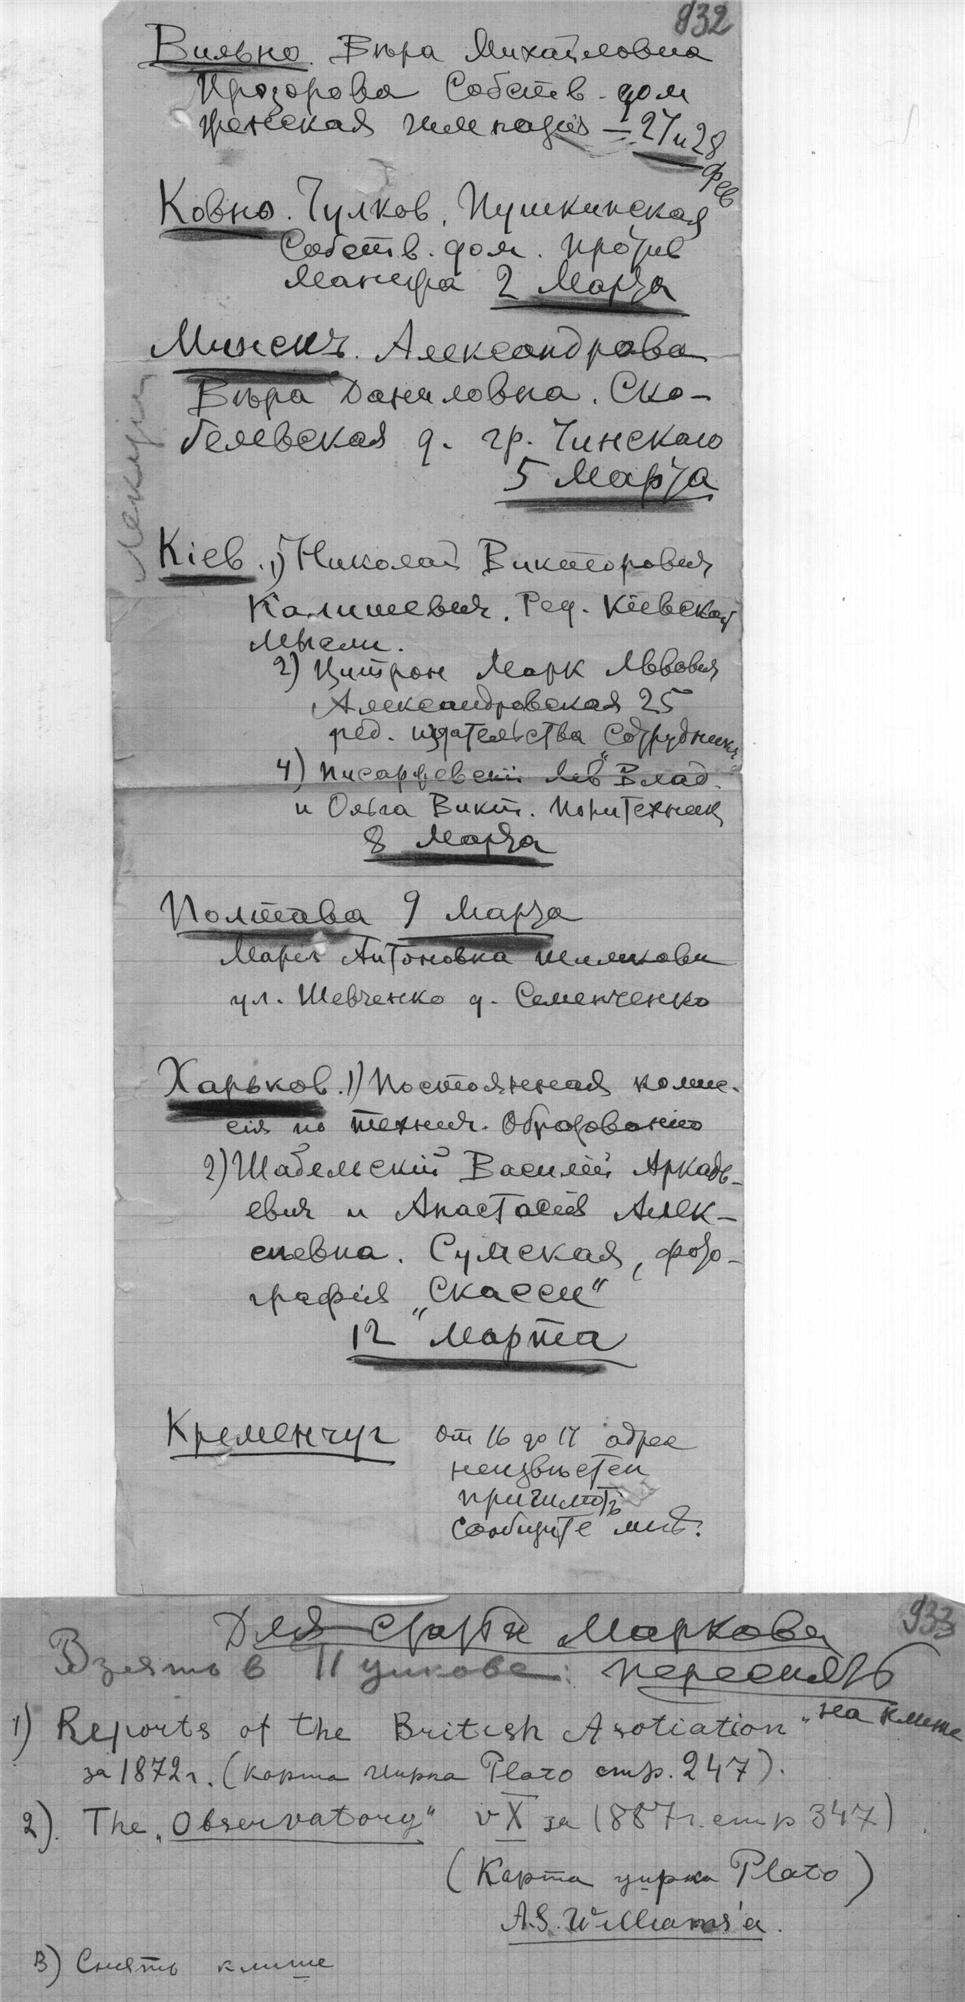 932
Вильно. Вѣра Михайловна
Прозорова Собств. дом
женская гимназия – 27 и 28
фев
Ковно. Чулков, Пушкинская
Собств. дом. против
Манежа 2 Марта
Минскъ. Александрова
Вѣра Даниловна. Ско-
белевская д. гр. Чапскаго
5 Марта
Лекции
Кіев. 1) Николай Викторович
Калишевич. Ред. Кіевской
Мысли.
2) Цитрон Марк Львович
Александровская 25
ред. издательства „Сотрудник“
4) Писаржевскій Лев Влад.
и Ольга Викт. Политехник
8 Марта
Полтава 9 марта
Мария Антоновна
ул. Шевченко д. Семенченко
Харьков. 1) Постоянная комис-
сія по технич. Образованію
2) Шабельскій Василій Аркадь-
евич и Анастасія Алек-
сѣевна. Сумская, фото-
графія „Скасси“
12 Марта
Кременчуг от 16 до 17 адрес
неизвѣстен
сообщите мнѣ.
933
Для статьи Маркова
Взять в Пулкове: переснять
на клише
1) Reports of the British Asotiation
за 1872 г. (карта цирка Plato стр. 247).
2). The „Observatory“ v X за 1887 г. стр 347)
(Карта цирка Plato)
A.S. Williams'а.
3) Снять клише